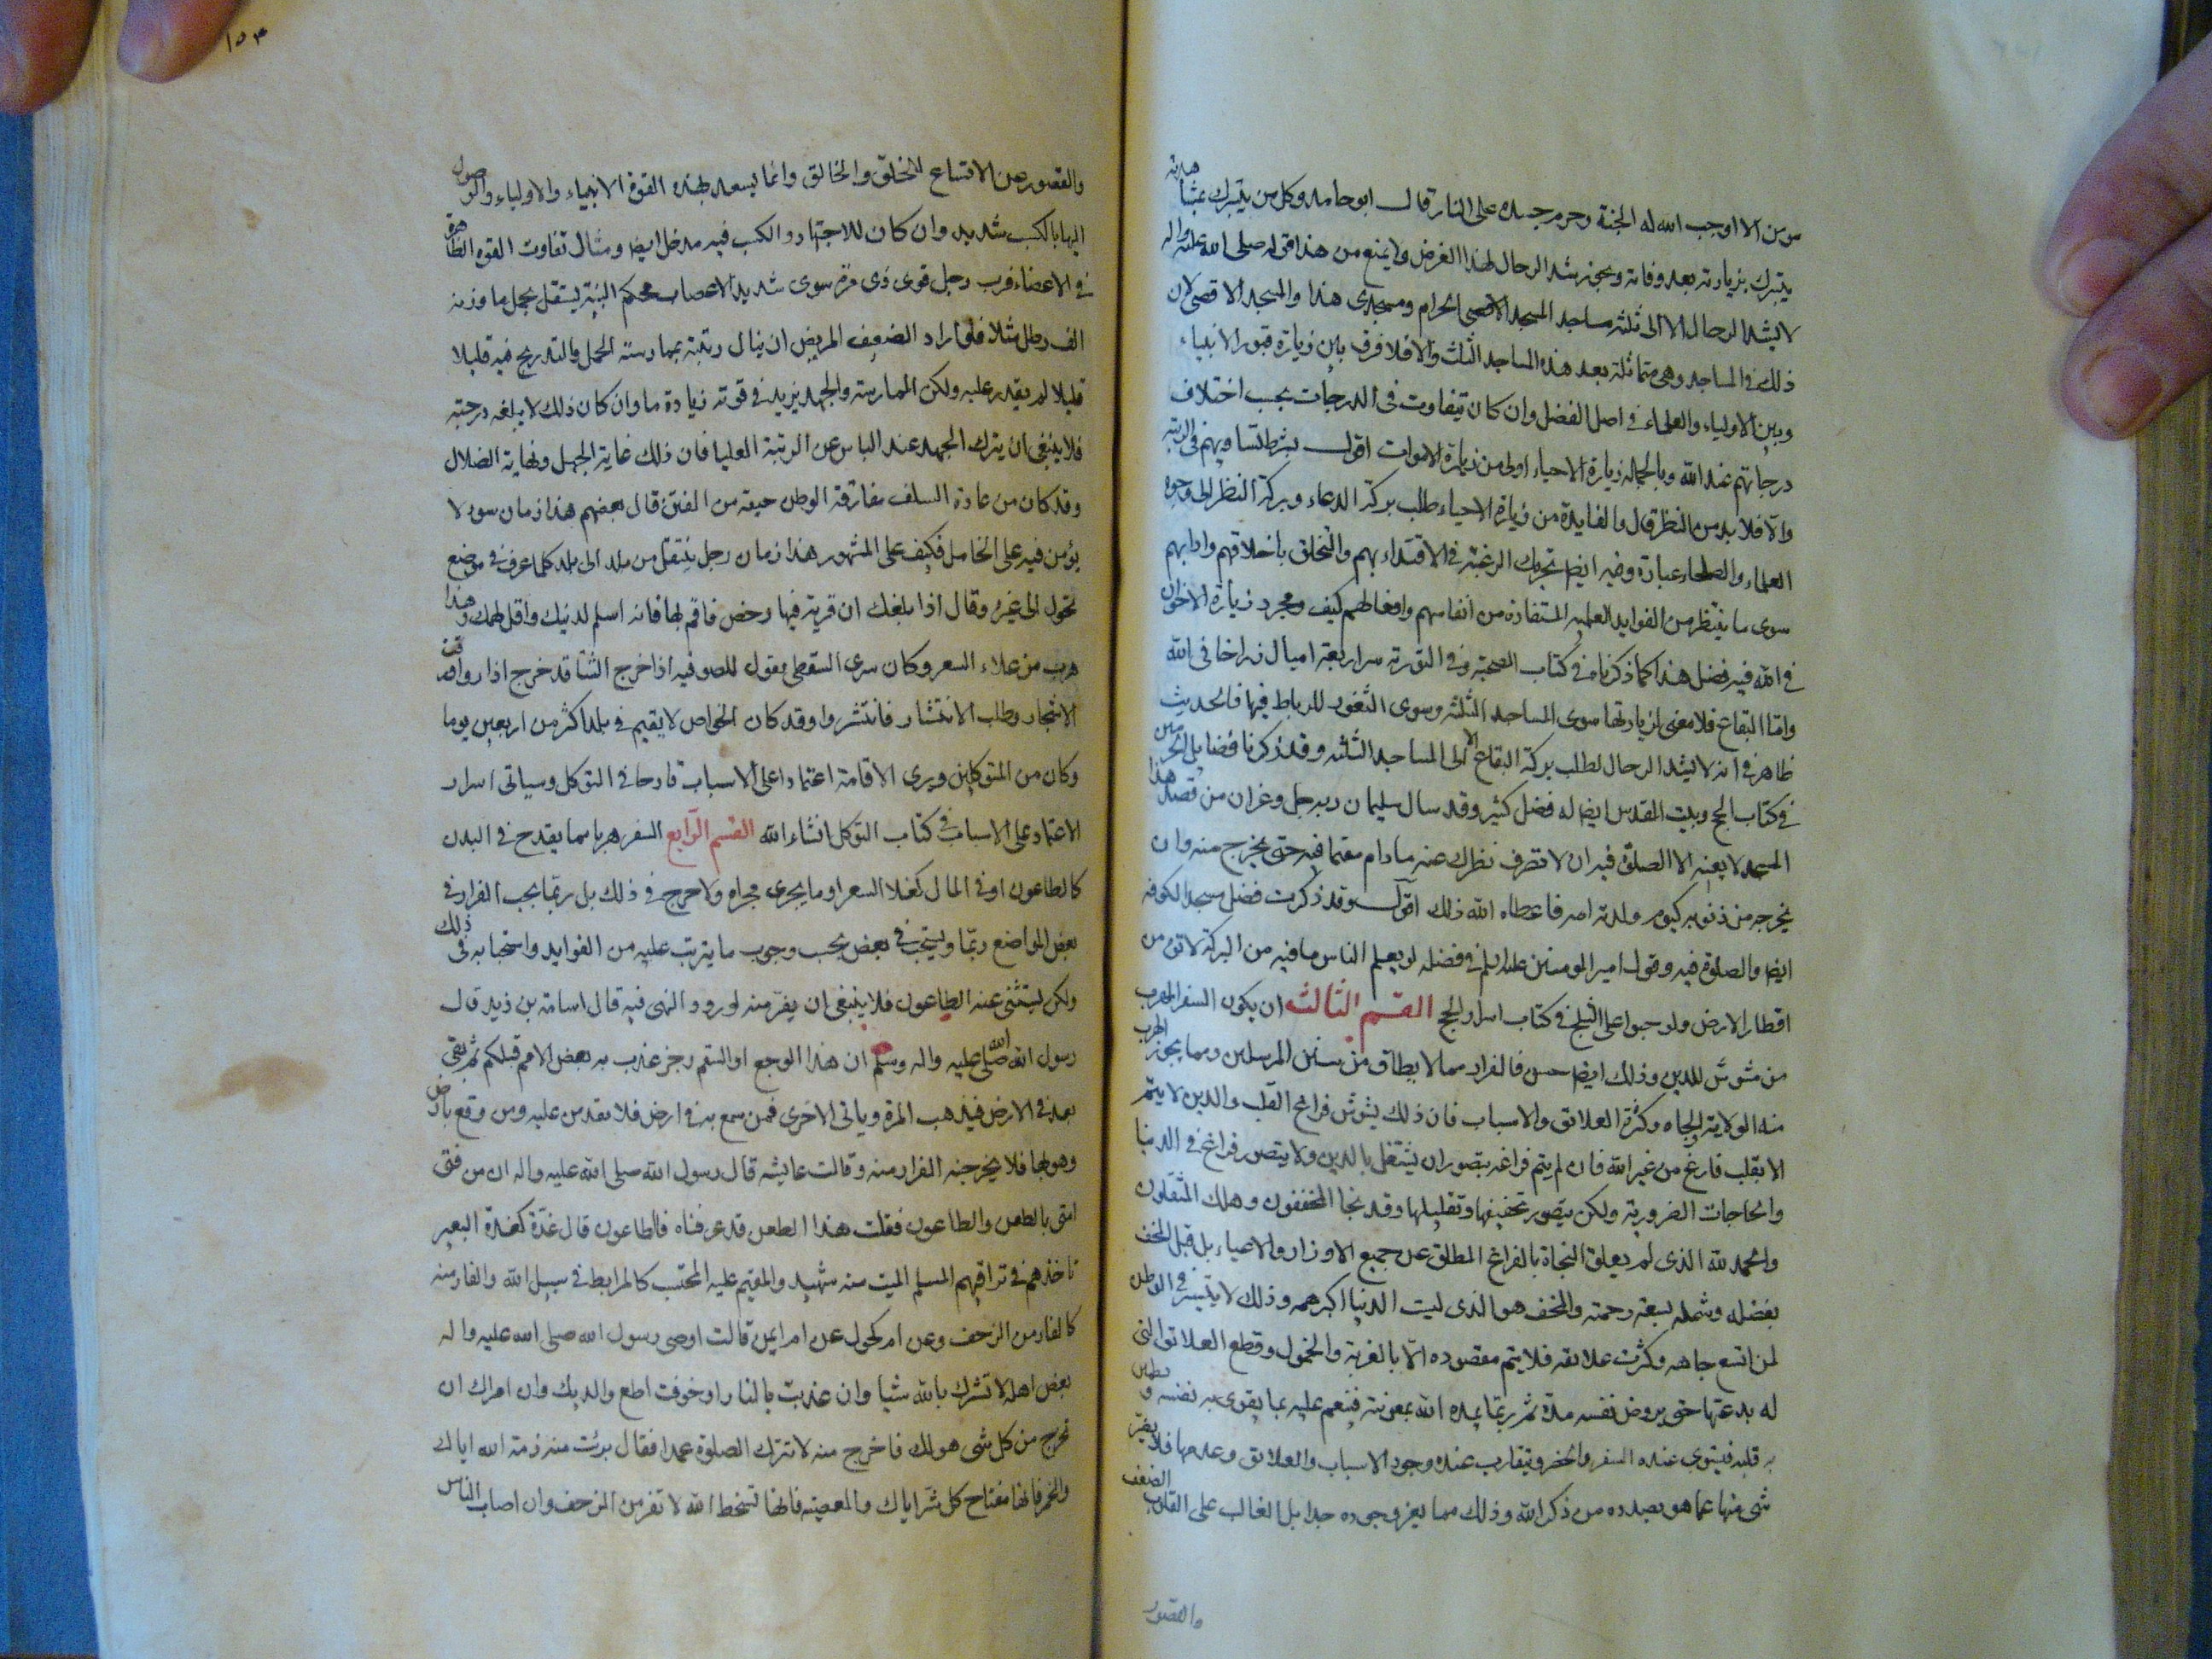 مومن الا اوجب الله له الجنة وحرم جسده على النار قال ابو حامد وكل من يتبرك بمشاهدته
يتبرك بزيارته بعد وفاته ويجوز شد الرحال لهذا الغرض ولا يمنع من هذا قوله صلى الله عليه واله
لا يشد الرحال الا الى ثلثة مساجد المسجد الحرام ومسجدى هذا والمسجد الاقصى لان
ذلك فى المساجد وهى متماثلة بعد هذه المساجد الثلث والا فلا فرق بين زيارة قبور الانبياء
وبين الاولياء والعلماء فى اصل الفضل وان كان تتفاوت فى الدرجات بحسب اختلاف
درجاتهم عند الله وبالجملة زيارة الاحياء اولى من زيارة الاموات اقول بشرط تساويهم فى الرتبة
والا فلا بد من النظر قال والفايدة من زيارة الاحياء طلب بركة الدعاء وبركة النظر الى وجوه
العلماء والصلحاء عبادة وفيه ايضا تحريك الرغبة فى الاقتداء بهم والتخلق باخلاقهم وادابهم
سوى ما ينتظر من الفوايد العلميه المستفادة من انفاسهم وافعالهم كيف ومجرد زيارة الاخوان
فى الله فيه فضل هذا كما ذكرناه فى كتاب الصحبة وفى التورية سر اربعة اميال زر اخا فى الله
واما البقاع فلا معنى لزيارتها سوى المساجد الثلثه وسوى الثغور للرباط فيها فالحديث
ظاهر فى انه لا يشد الرحال لطلب بركة البقاع الا الى المساجد الثلثه وقد ذكرنا فضايل الحرمين
فى كتاب الحج وبيت المقدس ايضا له فضل كثير وقد سال سليمان ربه جل وعز ان من قصد هذا
المسجد لا يعنيه الا الصلوة فيه ان لا تصرف نظرك عنه ما دام مقيما فيه حتى يخرج منه وان
يخرجه من ذنوبه كيوم ولدته امه فاعطاه الله ذلك اقول وقد ذكرت فضل مسجد الكوفه
ايضا والصلوة فيه وقول امير المومنين عليه السلم فى فضله لو يعلم الناس ما فيه من البركة لاتوه من
اقطار الارض ولو حبوا على الثلج فى كتاب اسرار الحج القسم الثالث ان يكون السفر للهرب
من مشوش للدين وذلك ايضا حسن فالفرار مما لا يطاق من سنن المرسلين ومما يجوز الهرب
منه الولاية والجاه وكثرة العلائق والاسباب فان ذلك يشوش فراغ القلب والدين لا يتم
الا بقلب فارغ من غير الله فان لم يتم فراغه يتصور ان يشتغل بالدين ولا يتصور فراغ فى الدنيا
والحاجات الضرورية ولكن يتصور تخفيفها وتقليلها وقد نجا المخففون وهلك المثقلون
والحمد لله الذى لم يعلق النجاة بالفراغ المطلق عن جميع الاوزار والاعباء بل قبل المخف
بفضله وشمله بسعة رحمته والمخف هو الذى ليست الدنيا اكبر همه وذلك لا يتيسر فى الوطن
لمن اتسع جاهه وكثرت علائقه فلا يتم مقصوده الا بالغربة والخمول وقطع العلائق التى
له بد عنها حتى يروض نفسه مدة ثم ربما يمده الله بمعونته فينعم عليه بما يقوى به نفسه ويطمئن
به قلبه فيستوى عنده السفر والحضر ويتقارب عنده وجود الاسباب والعلائق وعدمها فلا يغير
شى منها عما هو بصدده من ذكر الله وذلك مما يعز وجوده جدا بل الغالب على القلوب الضعف
والقصور
١٥٣
والقصور عن الاتساع للخلق والخالق وانما يسعد بهذه القوة الانبياء والاولياء والوصول
اليها بالكسب شديد وان كان للاجتهاد والكسب فيه مدخل ايضا ومثال تفاوت القوه الظاهرة
فى الاعضاء فرب رجل قوى ذى مرة سوى شديد الاعصاب محكم البنية يستقل بحمل ما وزنه
الف رطل مثلا فلو اراد الضعيف المريض ان ينال رتبته بممارسة الحمل والتدريج فيه قليلا
قليلا لم يقدر عليه ولكن الممارسة والجهد يزيد فى قوته زيادة ما وان كان ذلك لا يبلغه درجته
فلا ينبغى ان يترك الجهد عند الياس عن الرتبة العليا فان ذلك غاية الجهل ونهاية الضلال
وقد كان من عادة السلف مفارقة الوطن خيفة من الفتن قال بعضهم هذا زمان سوء لا
يؤمن فيه على الخامل فكيف على المشهور هذا زمان رجل ينتقل من بلد الى بلد كلما عرف فى موضع
تحول الى غيره وقال اذا بلغك ان قرية فيها رخص فاقم بها فانه اسلم لدينك واقل لهمك وهذا
هرب من غلاء السعر وكان سرى السقطى يقول للصوفيه اذا خرج الشتا قد خرج اذار واورقت
الاشجار وطاب الانتشار فانتشروا وقد كان الخواص لا يقيم فى بلد اكثر من اربعين يوما
وكان من المتوكلين ويرى الاقامة اعتمادا على الاسباب قادحا فى التوكل وسياتى اسرار
الاعتماد على الاسباب فى كتاب التوكل انشاء الله القسم الرابع السفر هربا مما يقدح فى البدن
كالطاعون او فى المال كغلا السعر او ما يجرى مجراه ولا حرج فى ذلك بل ربما يجب الفرار فى
بعض المواضع وربما يستحب فى بعض بحسب وجوب ما يترتب عليه من الفوايد واستحبابه فى ذلك
ولكن يستثنى عنه الطاعون فلا ينبغى ان يفر منه لورود النهى فيه قال اسامة بن زيد قال
رسول الله صلى الله عليه واله وسلم ان هذا الوجع او السقم رجز عذب به بعض الامم قبلكم ثم بقى
بعد فى الارض فيذهب المرة وياتى الاخرى فمن سمع به فى ارض فلا يقدمن عليه ومن وقع بارض
وهو بها فلا يخرجنه الفرار منه وقالت عايشه قال رسول الله صلى الله عليه واله ان من فنى
امتى بالطعن والطاعون فقلت هذا الطعن قد عرفناه فالطاعون قال غدة كغدة البعير
تاخذهم فى تراقيهم المسلم الميت منه شهيد والمقيم عليه المحتسب كالمرابط فى سبيل الله والفار منه
كالفار من الزحف وعن مكحول عن ام ايمن قالت اوصى رسول الله صلى الله عليه واله
بعض اهله لا تشرك بالله شيا وان عذبت بالنار او خوفت اطع والديك وان امراك ان
تخرج من كل شى هو لك فاخرج منه لا تترك الصلوة عمدا فقال برئت منه ذمة الله اياك
والخمر فانها مفتاح كل شر اياك والمعصية فانها تسخط الله لا تفر من الزحف وان اصاب الناس